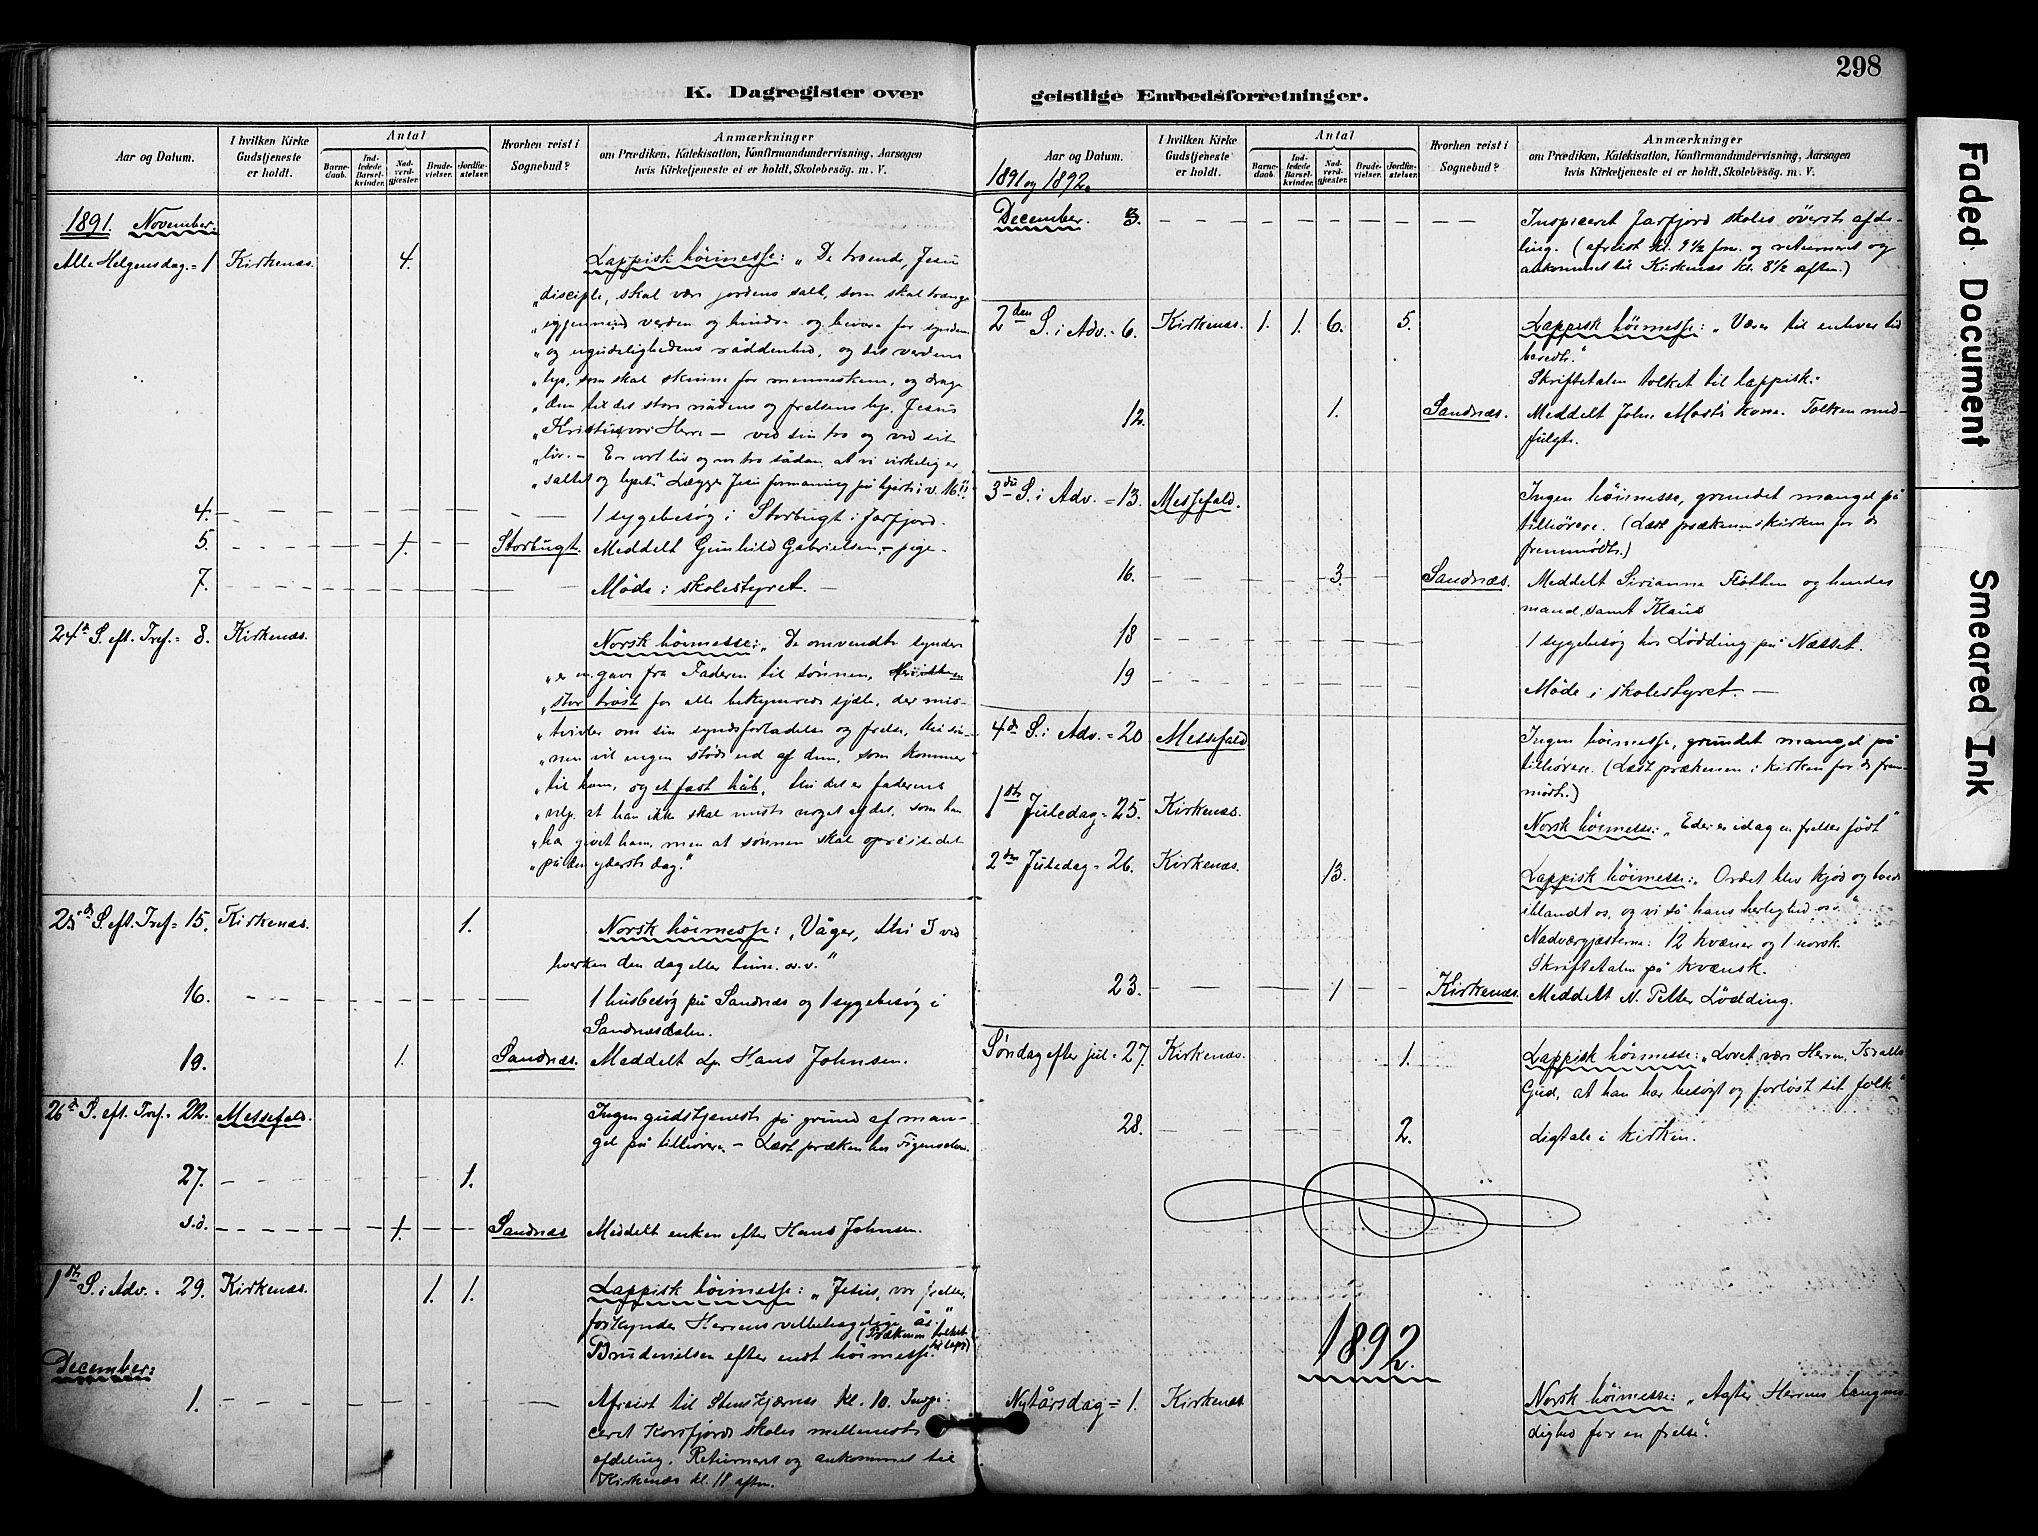 298
K. Dagregister over geistlige Embedsforretninger.
Aar og Datum.
I hvilken Kirke Gudstjeneste er holdt.
Antal
Barnedaab.
Indledede Barselkvinder.
Nadverdgjester.
Brudevielser.
Jordfæstelser.
Hvorhen reist i Sognebud?
Anmærkninger
om Prædiken, Katekisation, Konfirmandundervisning, Aarsagen
hvis Kirketjeneste ei er holdt, Skolebesøg. m. V.
1891. November.
Alle Helgensdag = 1 Kirkenæs. 4. Lappisk höimesse: "De troende, Jesu
"disciple, skal være jordens salt, som skal trænge
"igjennem verden og hindre og bevare for synden
"og ugudelighedens råddenhed, og det verdens
"lys, som skal skinne for menneskene, og drage
"dem til det store nådens og frelsens lys. Jesus
"Kristus, vor Herre – ved sin tro og ved sit
"liv. – Er vort liv og vor tro sådan, at vi virkelig er
"saltet og lyset." Lægge Jesu formaning på hjerte i v. 16
4. 1 sygebesøg i Storbugt i Jarfjord.
5. 1. Storbugt. Meddelt Gunhild Gabrielsen, – pige.
7. Møde i skolestyret. –
24de S. eft. Tref. = 8. Kirkenæs. Norsk höimesse: "De omvendte syndere
"er en gave fra Faderen til sønnen.
"stor trøst for alle bekymrede sjæle, der mis-
"tvivler om sin syndsforladelse og frelse, thi søn-
"nen vil ingen støde ud af dem, som kommer
"til ham, og et fast håb, thi det er faderens
"vilje, at han ikke skal miste noget af det, som han
"har givet ham, men at sønnen skal opreise det
"på den yderste dag."
25de S. eft. Tref = 15. Kirkenæs. 1. Norsk höimesse: "Våger, thi I ved
hverken den dag eller time. o.s.v."
16. 1 husbesøg på Sandnæs og 1 sygebesøg i
Sandnæsdalen.
19. 1. Sandnæs. Meddelt Lp. Hans Johnsen.
26de S. eft. Tref. = 22. Messefald. Ingen gudstjeneste på grund af man-
gel på tilhørere. – Læst præken hos
27. 1.
s.d. 1. Sandnæs Meddelt enken efter Hans Johnsen.
1ste S. i Adv. = 29. Kirkenæs. 1. 1. Lappisk höimesse: "Jesus, vor frelser,
forkynder Herrens velbehagelige år."
(Prækenen tolket til lapp.)
Brudevielsen efter endt höimesse.
December:
1. Afreist til Stenskjærnæs kl. 10. Inspi-
ceret Korsfjords skoles mellemste
afdeling. Returneret og ankommet til
Kirkenæs kl. 11 aften.
Aar og Datum.
1891 og 1892.
I hvilken Kirke Gudstjeneste er holdt.
Antal
Barnedaab.
Indledede Barselkvinder.
Nadverdgjester.
Brudevielser.
Jordfæstelser.
Hvorhen reist i Sognebud?
Anmærkninger
om Prædiken, Katekisation, Konfirmandundervisning, Aarsagen
hvis Kirketjeneste ei er holdt, Skolebesøg. m. V.
December. 3. Inspiceret Jarfjord skoles överste afde-
ling. (afreist kl. 9 1/2 form. og returneret og
ankommet til Kirkenæs kl. 8 1/2 aften.)
2den S. i Adv. = 6. Kirkenæs. 1. 1. 6. 5. Lappisk höimesse: "Værer til enhver tid
beredt."
Skriftetalen tolket til lappisk.
12. 1. Sandnæs. Meddelt John Mostis kone. Tolken med-
fulgte.
3die S. i Adv. = 13. Messefald. Ingen höimesse, grundet mangel på
tilhörere. (Læst prækenen i kirken for de
fremmødte.)
16. 3. Sandnæs. Meddelt Sirianna Fløtten og hendes
mand, samt Klaus
18 1 sygebesøg hos Lødding på Næsset.
19 Møde i skolestyret. –
4de S. i Adv. = 20 Messefald Ingen höimesse, grundet mangel på
tilhörere. (Læst prækenen i kirken for de frem-
mødte.)
1ste Juledag = 25. Kirkenæs. Norsk höimesse: "Eder er idag en frelser født"
2den Juledag = 26. Kirkenæs. 13. Lappisk höimesse: "Ordet blev kjød og boede
iblandt os, og vi så hans herlighed o.s.v."
Nadvergjesterne: 12 kvæner og 1 norsk.
Skriftetalen på kvænsk.
23. 1 Kirkenæs. Meddelt N. Petter Lødding.
Søndag efter jul = 27. Kirkenæs. 1. Lappisk höimesse: "Lovet være Herren, Israels
Gud, at han har besøgt og forløst sit folk."
28. 2. Ligtale i kirken.
1892.
Nytårsdag = 1. Kirkenæs. Norsk höimesse: "Agter Herrens langmo-
dighed for en frelse".
Faded Document
Smeared Ink